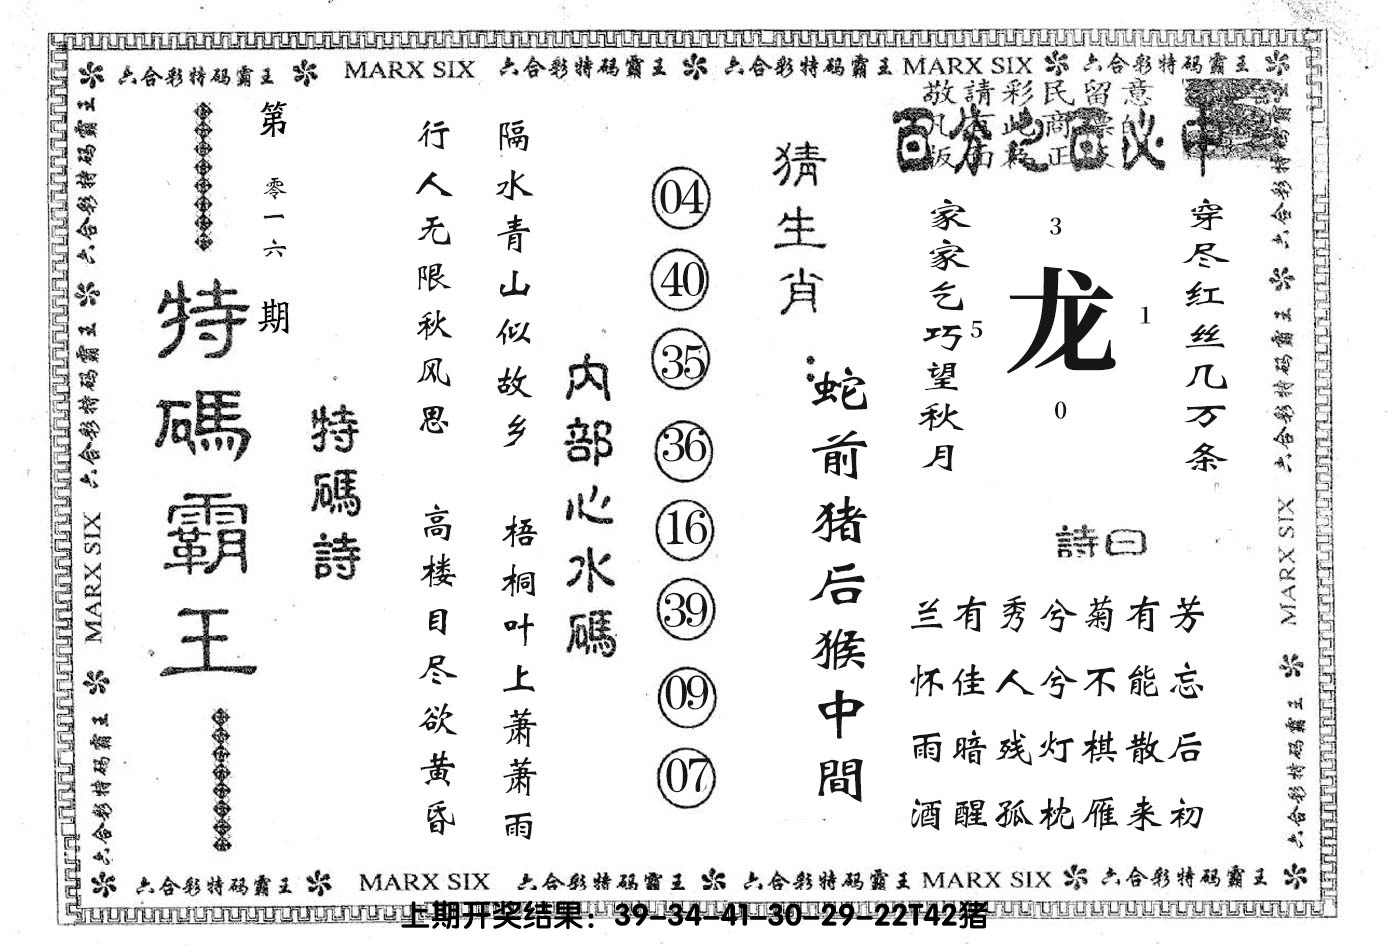 六合彩特码霸王 MARX SIX 六合彩特码霸王 六合彩特码霸王 MARX SIX 六合彩特码霸王
六合彩特码霸王 六合彩特码霸王 MARX SIX 六合彩特码霸王
六合彩特码霸王 六合彩特码霸王 MARX SIX 六合彩特码霸王
第零一六期
特碼霸王
特碼詩
行人无限秋风思
隔水青山似故乡
高楼目尽欲黄昏
梧桐叶上萧萧雨
内部心水碼
04
40
35
36
16
39
09
07
猜生肖:
蛇前猪后猴中間
敬請彩民留意
百分之百必中
家家乞巧望秋月
3
5
龙
1
0
穿尽红丝几万条
詩曰
兰有秀兮菊有芳
怀佳人兮不能忘
雨暗残灯棋散后
酒醒孤枕雁来初
六合彩特码霸王 MARX SIX 六合彩特码霸王 六合彩特码霸王 MARX SIX 六合彩特码霸王
上期开奖结果：39-34-41-30-29-22T42猪